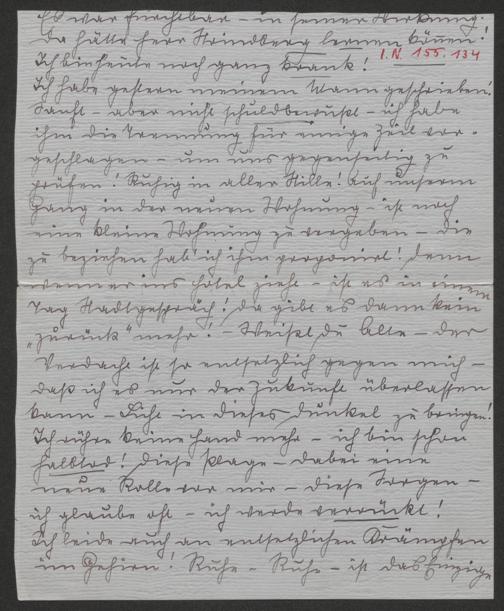 Es war furchtbar – in seiner Wirkung.
Da hätte Herr Strindberg lernen können!
I.N. 155.134
Ich bin heute noch ganz krank!
Ich habe gestern meinem Mann geschrieben!
Sanft – aber nicht schuldbewußt – ich habe
ihm die Trennung für einige Zeit vor-
geschlagen – um uns gegenseitig zu
prüfen! Ruhig in aller Stille! Auf unserm
Gang in der neuen Wohnung – ist noch
eine kleine Wohnung zu vergeben – die
zu beziehen hab' ich ihm proponirt! denn
wenn er ins Hôtel zieht – ist es in einem
Tag Stadtgespräch! da gibt es dann kein
„zurück" mehr! – Weißt du Alte – der
Verdacht ist so entsetzlich gegen mich –
daß ich es nur der Zukunft überlassen
kann – Licht in dieses Dunkel zu bringen!
Ich rühre keine Hand mehr – ich bin schon
halbtod! diese Plage – dabei eine
neue Rolle vor mir – diese Sorgen –
ich glaube oft – ich werde verrückt!
Ich leide auch an entsetzlichen Krämpfen
im Gehirn! Ruhe – Ruhe – ist das Einzige